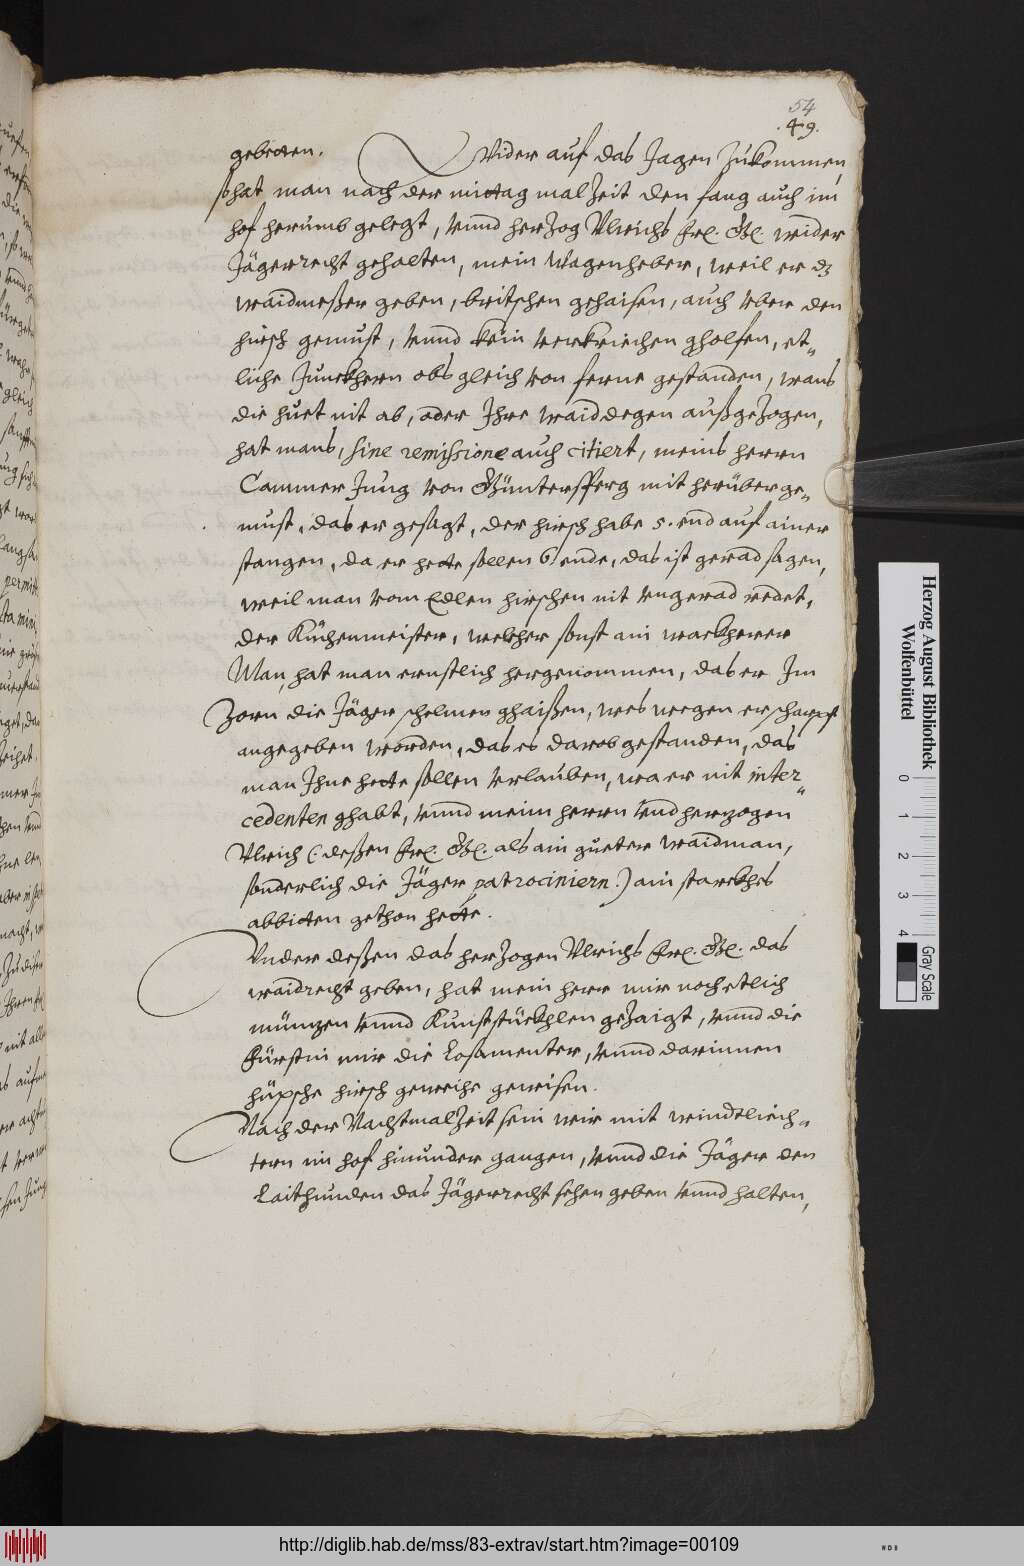 54
.49.
gebetten. Wider auf das Jagen zukommen,
so hat man nach der mittag malzeit den fang auch im
hof herumb gelegt, vnnd herzog Vlrichs frl. Gl. wider
Jägerrecht gehalten, mein Wagenheber, weil er dz
waidmeßer geben, britschen gehaisen, auch vber den
hirsch gemust, vnnd kein verkriechen gholfen, et„
liche Junckhern obs gleich von ferne gestanden, wans
die huet nit ab, oder Ihre waiddegen außgezogen,
hat mans, sine remissione auch citiert, meins herrn
Cammer Jung von Güntersperg mit herüber ge„
must, das er gesagt, der hirsch habe 5. end auf ainer
stangen, da er hette sollen 6 ende, das ist gerad sagen,
weil man vom Edlen hirschen nit vngerad redet,
der Kuchenmeister, welcher sonst ain wackherer
Man, hat man ernstlich hergenommen, das er Im
Zorn die Jäger schelmen ghaißen, wes wegen er scharpf
angegeben worden, das es darob gestanden, das
man Ihne hette sollen vrlauben, wa er nit inter„
cedenten ghabt, vnnd meim herrn vnd herzogen
Vlrich (: deßen frl. Gl. als ain gueter waidman,
sonderlich die Jäger patrociniern :) ain starckhes
abbitten gethon hette.
Vnder deßen das herzogen Vlrichs frl. Gl. das
waidrecht geben, hat mein herr mir noch etlich
müntzen vnnd Kunststückhlen gezaigt, vnnd die
Fürstin mir die Losamenter, vnnd darinnen
hüpsche hirsch geweihe gewisen.
Nach der Nachtmalzeit sein wir mit windtliech„
tern im hof hinunder gangen, vnnd die Jäger den
Laithunden das Jägerrecht sehen geben vnnd halten,
Herzog August Bibliothek
Wolfenbüttel
0 1 2 3 4
Gray Scale
http://diglib.hab.de/mss/83-extrav/start.htm?image=00109
WDB